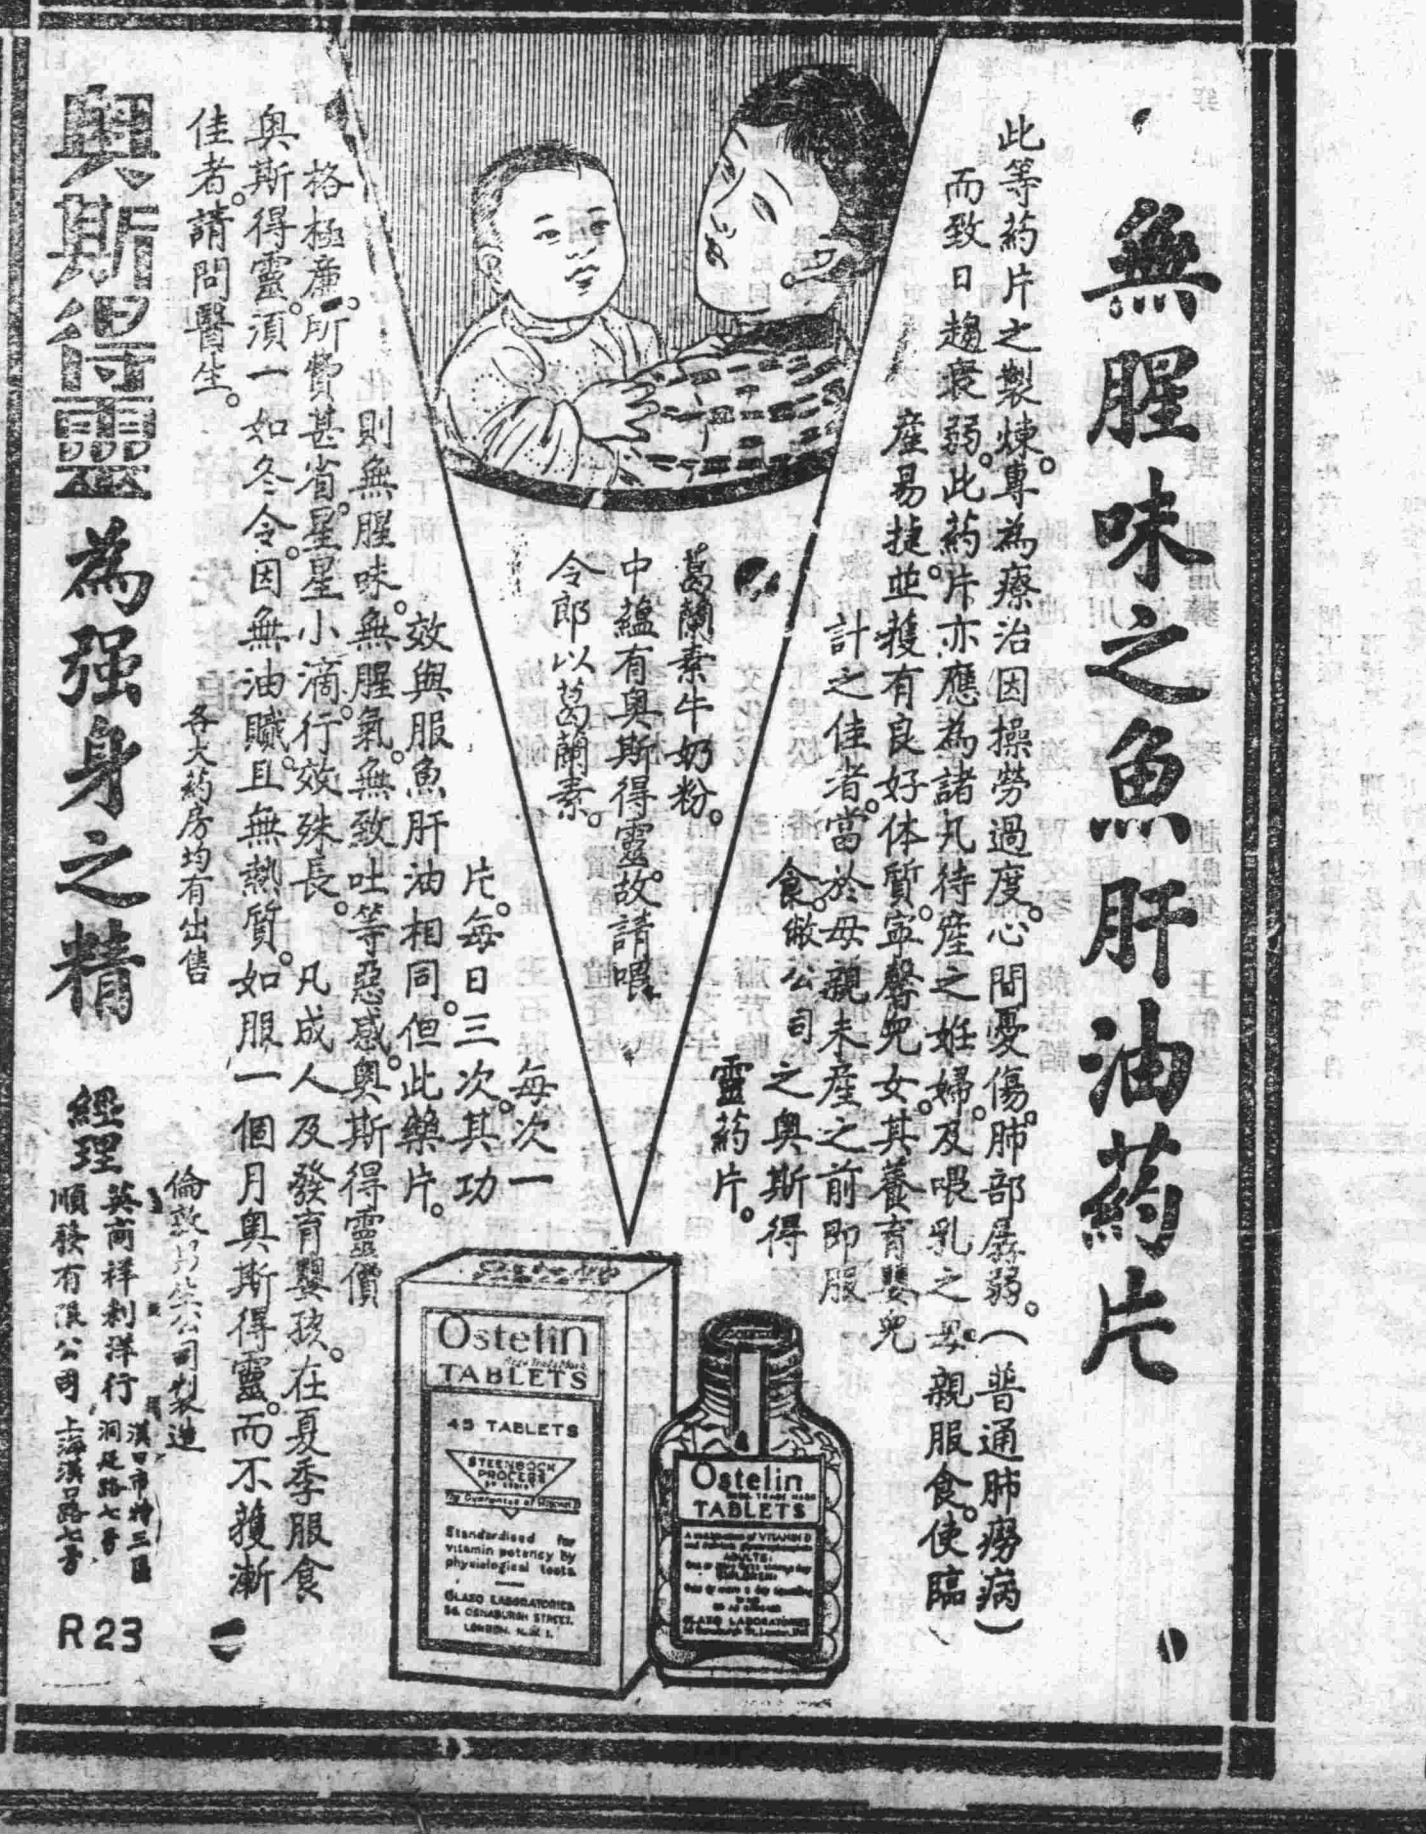 無腥味之魚肝油药片
此等药片之製煉。專為療治因操勞過度。心間憂傷。肺部孱弱。(普通肺癆病)
而致日趨衰弱。此药片亦應為諸凡待產之姙婦。及喂乳之母親服食。使臨
產易捷。並獲有良好体質。寧馨兒女。其養育嬰兒
計之佳者。當於母親未產之前即服
食。敝公司之奧斯得
靈药片。
葛蘭素牛奶粉。
中蘊有奧斯得靈。故請喂
令郎以葛蘭素。
每次一
片。每日三次。其功
效與服魚肝油相同。但此藥片。
則無腥味。無腥氣。無致吐等惡感。奧斯得靈價
格極廉。所費甚省。星星小滴。行效殊長。凡成人及發育嬰孩。在夏季服食
奧斯得靈。須一如冬令。因無油贓。且無熱質。如服一個月奧斯得靈。而不獲漸
佳者。請問醫生。
各大药房均有出售
倫敦公司製造
奧斯得靈為强身之精
經理
英商祥利洋行
漢口市特三區
洞庭路七号
順發有限公司
上海漢口路七号
R23
Ostelin
TABLETS
45 TABLETS
STEENBOCK
PROCESS
Standardised for
vitamin potency by
physiological tests
GLAXO LABORATORIES
56, OSNABURGH STREET,
LONDON. N.W.1.
Ostelin
TABLETS
ADULTS:
CHILDREN:
GLAXO LABORATORIES